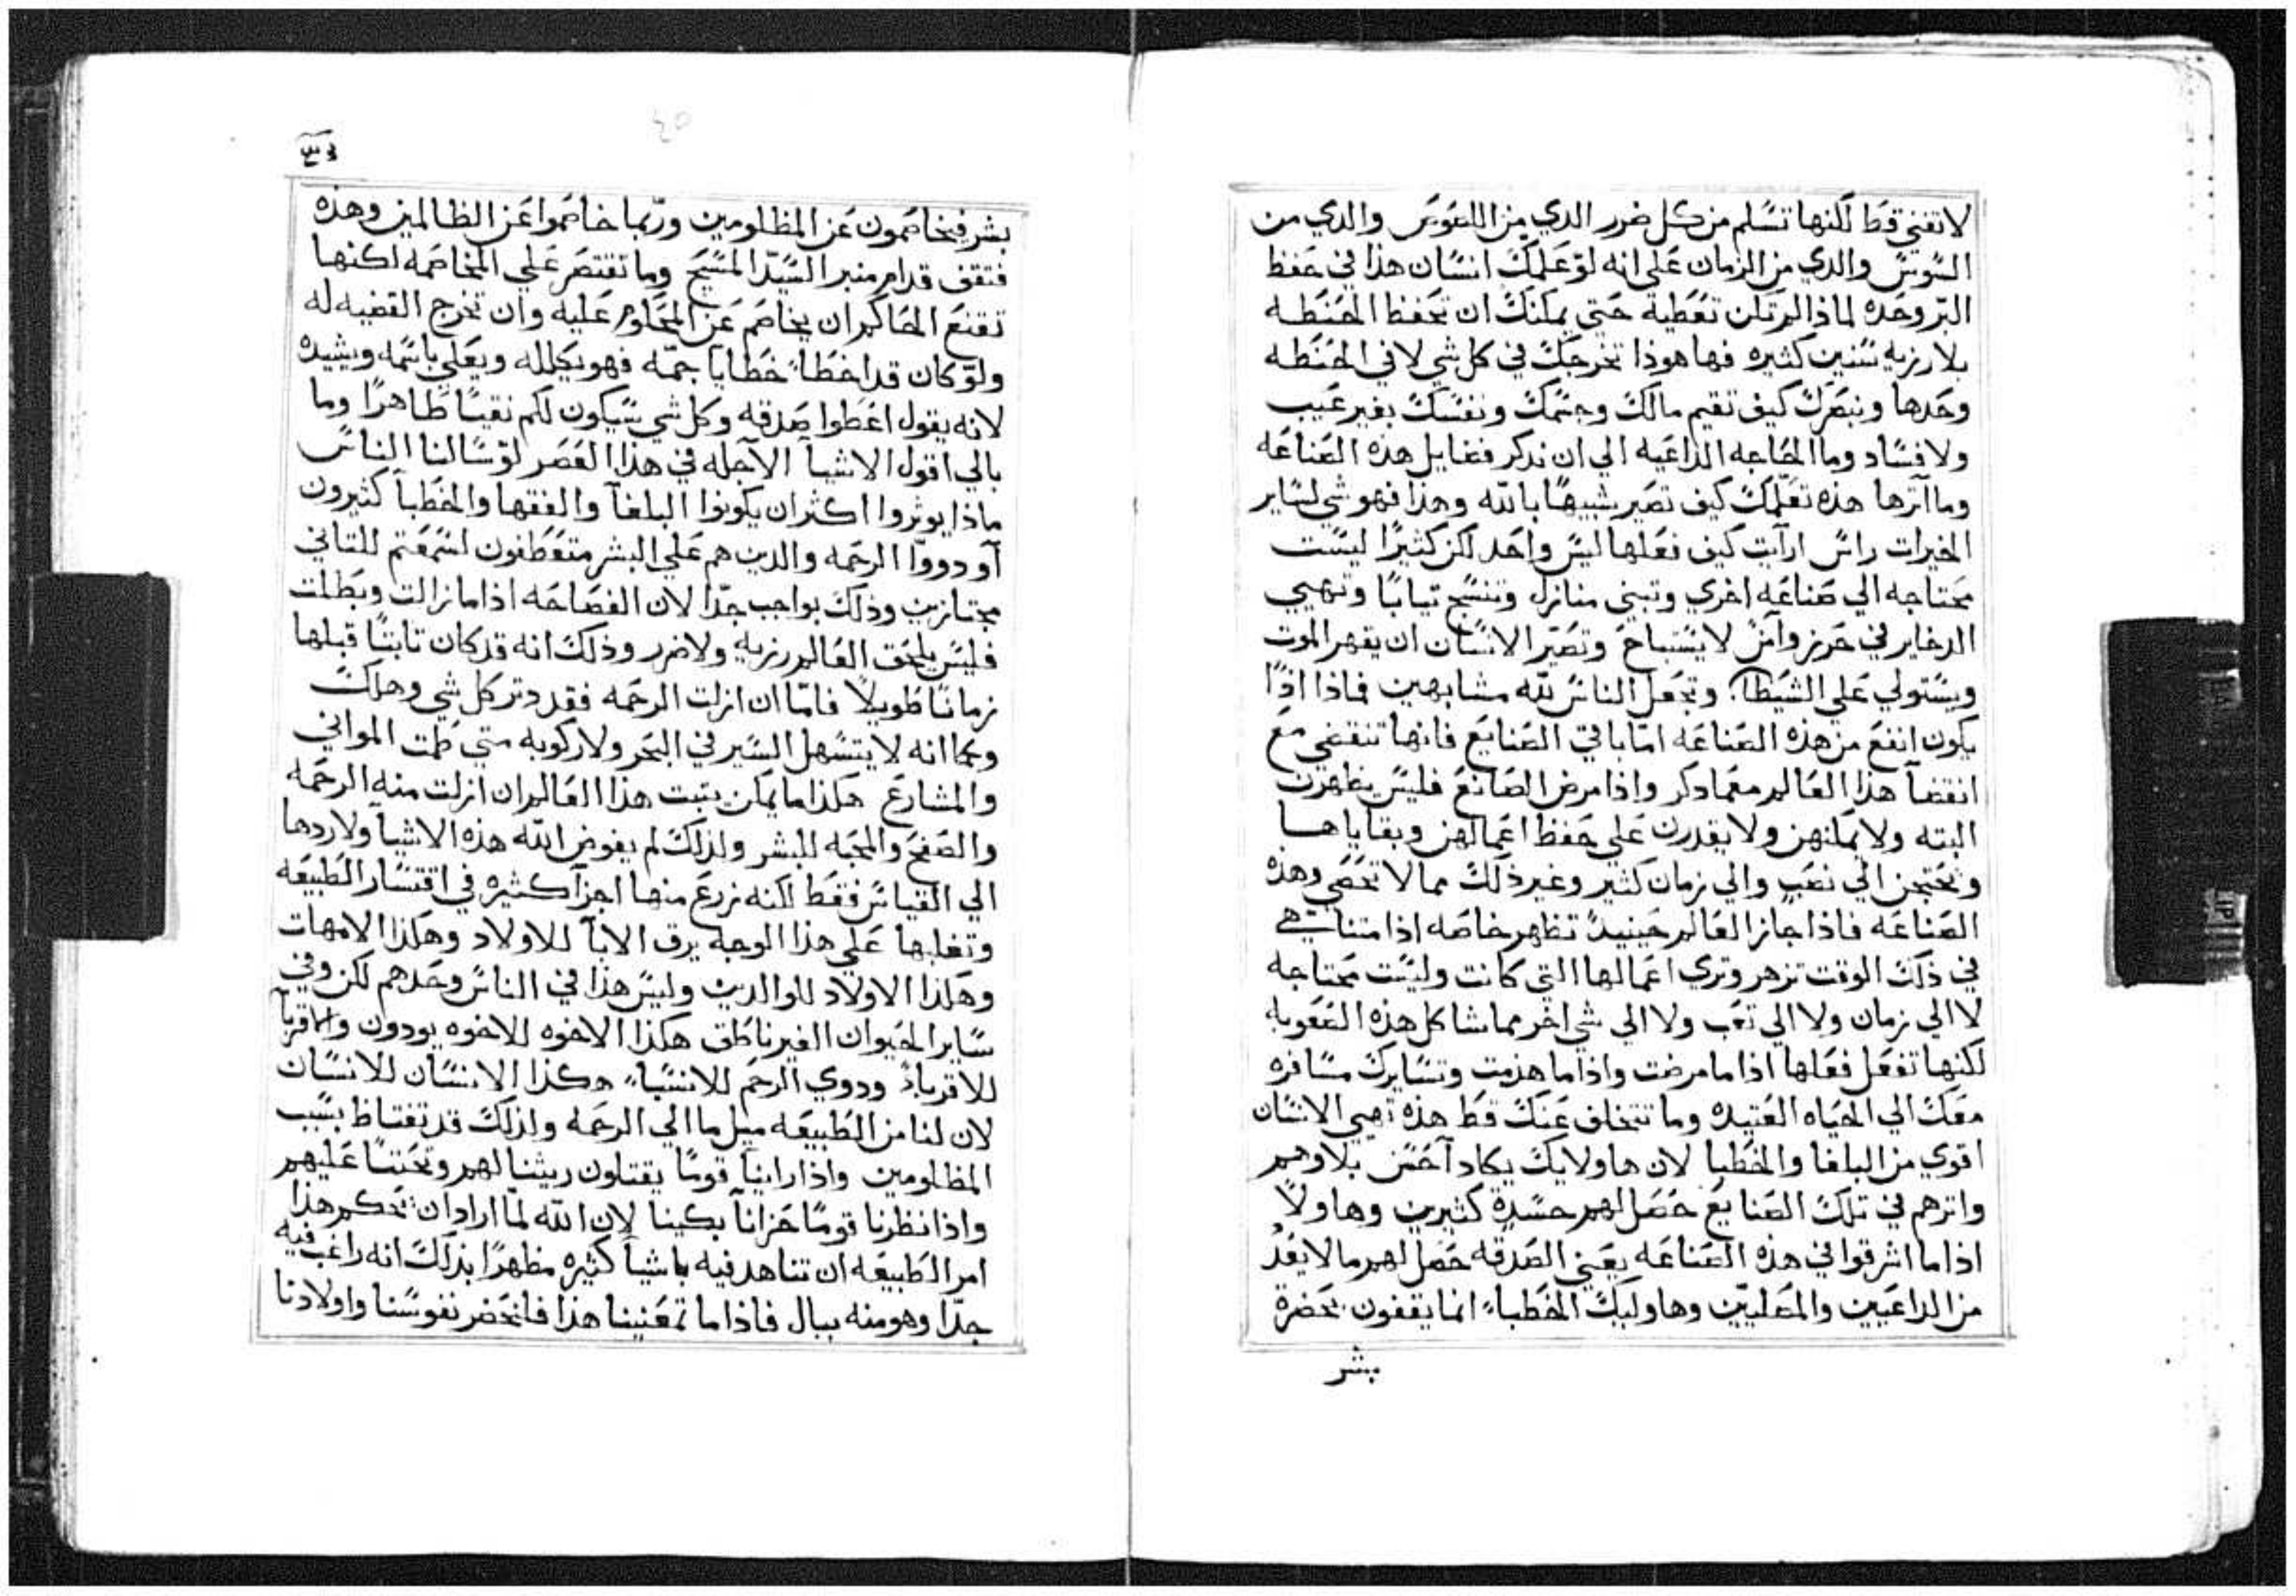 لا تفني قط لكنها تسلم من كل ضرر الدي من اللصوص والدي من
السوس والدي من الزمان على انه لو علمك انسان هذا في حفظ
البر وحده لماذا لم تكن تعطيه حتى يمكنك ان تحفظ الحنطه
بلا رزيه سنين كثيره فها هوذا تخرجك في كل شي لا في الحنطه
وحدها وتبصرك كيف تقيم مالك وجسمك ونفسك بغير عيب
ولا فساد وما الحاجه الداعيه الي ان ندكر فضايل هذه الصناعه
وما آثرها هذه تعلمك كيف تصير شبيهًا بالله وهذا فهو شي لساير
الخيرات راس ارآيت كيف فعلها ليس واحد لكن كثيرًا ليست
محتاجه الي صناعه اخري وتبني منازل وتنسج تيابًا وتهيي
الدخاير في حرز وآمن لا يستباح وتصير الانسان ان يقهر الموت
ويستولي علي الشيطا وتجعل الناس لله مشابهين فماذا اذًا
يكون انفع من هذه الصناعه امّا باقي الصنايع فانها تنقضي مع
انقضآ هذا العالم معما دكر واذا مرض الصانع فليس يظهرن
البته ولا يمكنهن ولا يقدرن علي حفظ اعمالهن وبقاياها
وتحتجن الي نصب والي زمان كثير وغير ذلك مما لا تحصي وهذه
الصناعه فاذا جاز العالم حينيدً تظهر خاصه اذا متنا هي
في ذلك الوقت تزهر وتري اعمالها التي كانت وليست محتاجه
لا الي زمان ولا الي تعب ولا الي شي اخر مما شاكل هذه الصعوبه
لكنها تفعل فعلها اذا ما مرضت واذا ما هزمت وتسايرك مسافره
معك الي الحياه العتيده وما تتخلف عنك قط هذه تصي الانسان
اقوي من البلغا والخطبا لان هاولايك يكاد آحسن بلاوهم
واترهم في تلك الصنايع حصل لهم حسدة كثيرين وهاولا
اذا ما اشرقوا في هذه الصناعه يعني الصدقه حصل لهم ما لا يعدُ
من الداعيين والمصليّين وهاوليك الخطباء انما يقفون بحضرة
بشر
٤٥
بشر فيخاصمون عن المظلومين وربّما خاصموا عن الظالمين وهذه
فتقف قدام منبر السيّد المسيح وما تقتصر علي المخاصمه لكنها
تقنع الحاكم ان يخاصم عن المحكوم عليه وان تخرج القضيه له
ولو كان قد اخطأ خطايا جمّه فهو يكلله ويعلي باسمه ويشيده
لانه يقول اعطوا صدقه وكل شي سيكون لكم نقيًا طاهرًا وما
بالي اقول الاشيآ الآجله في هذا العصر لو سالنا الناس
ماذا يوثروا اكثر ان يكونوا البلغآ والفقها والخطبآ كثيرون
آو دووّا الرحمه والدين هم علي البشر متعطفون لسمعتم للتاني
مجتازين وذلك بواجب جدّا لان الفصاحه اذا ما زالت وبطلت
فليس يلحق العالم رزيه ولا ضرر وذلك انه قد كان تابتًا قبلها
زمانًا طويلاً فامّا ان ازلت الرحمه فقد دتر كل شي وهلك
وكما انه لا يتسهل السير في البحر ولا ركوبه متي طمت المواني
والمشارع هكذا ما يمكن يتبت هذا العالم ان ازلت منه الرحمه
والصفح والمحبه للبشر ولذلك لم يفوض الله هذه الاشيآ ولا ردها
الي القياس فقط لكنه زرع منها اجزآ كثيره في اقتسار الطبيعه
وتغلبها علي هذا الوجه يرق الابآ للاولاد وهكذا الامهات
وهكذا الاولاد للوالدين وليس هذا في الناس وحدهم لكن وفي
ساير الحيوان الغير ناطق هكذا الاخوه للاخوه يودون والاقربآ
للاقرباء ودوي الرحم للانسباء هكذا الانسان للانسان
لان لنا من الطبيعه ميل ما الي الرحمه ولذلك قد تغتاظ بسبب
المظلومين واذا راينآ قومًا يقتلون ريثنا لهم وتحننا عليهم
واذا نظرنا قومًا حزاناَ بكينا لان الله لمّا اراد ان تحكم هذا
امر الطبيعه ان تناهد فيه باشيآ كثيره مظهرًا بذلك انه راغب فيه
جدّا وهو منه ببال فاذا ما تمعنينا هذا فلنحضر نفوسنا واولادنا